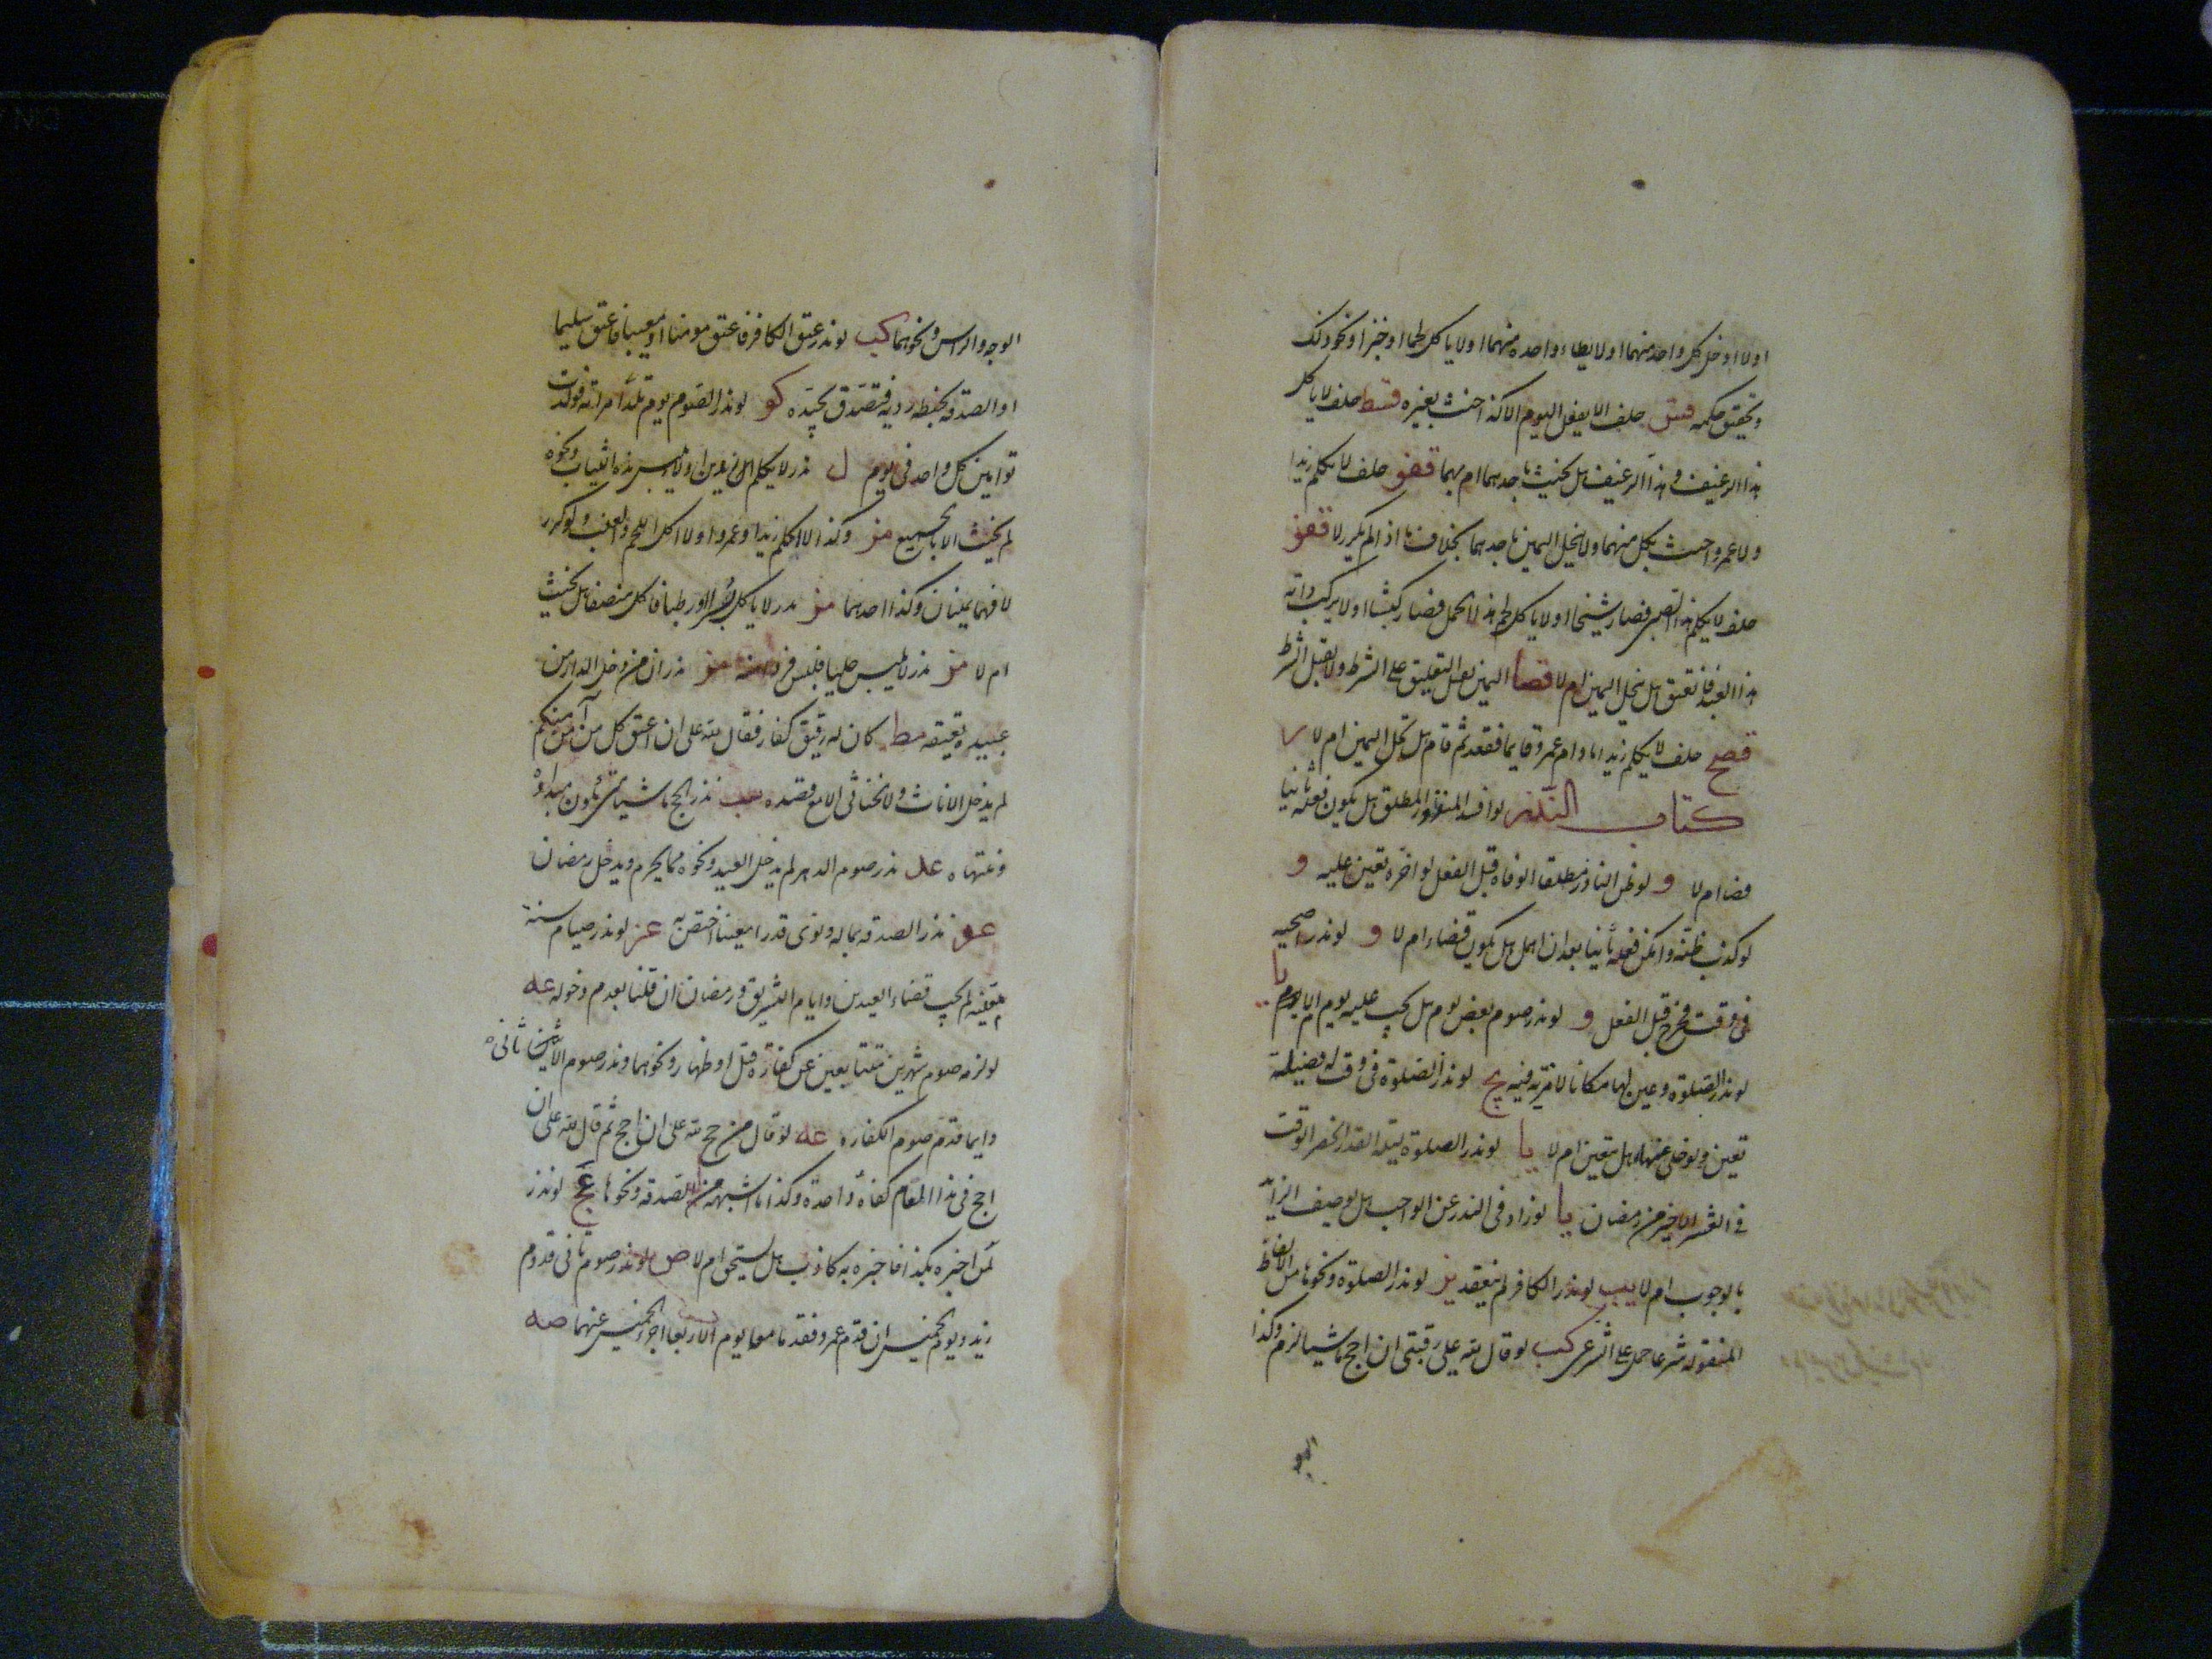 او لا ادخل كل واحد منهما او لا يطاء واحده منهما او لا ياكل لحما او خبزا او نحو ذلك
وتحقيق حكمه قسق حلف الا يفعل اليوم الا كذا حنث بغيره قسط حلف لا ياكل
هذا الرغيف وهذا الرغيف هل يحنث باحدهما ام بهما قفو حلف لا يكلم زيدا
ولا عمروا حنث بكل منهما ولا ينحل اليمين باحدهما بخلاف ما اذا لم يكرر لا قفز
حلف لا يكلم هذا الصبي فصار شيخا او لا ياكل لحم هذا الحمل فصار كبشا او لا يركب دابه
هذا العبد فانعتق هل ينحل اليمين ام لا قصا اليمين يقبل التعليق على الشرط ولا يقبل الشرط
قصح حلف لا يكلم زيدا ما دام عمرو قايما فقعد ثم قام هل تنحل اليمين ام لا
كتاب النذر لو افسد المنذور المطلق هل يكون فعله ثانيا
قضا ام لا و لو ظن الناذر مطلقا الوفاة قبل الفعل لو اخره تعين عليه و
لو كذب ظنه وامكن فعله ثانيا بعد ان اهمل هل يكون قضاء ام لا و لو نذر اضحيه
في وقت فخرج قبل الفعل و لو نذر صوم بعض يوم هل يجب عليه يوم ام لا يا
لو نذر الصلوة وعين لها مكانا لا مزية فيه يج لو نذر الصلوة في وقت له فضيلة
تعين ولو خلى عنها هل يتعين ام لا يا لو نذر الصلوة ليلة القدر انحصر الوقت
في العشر الاخير من رمضان يا لو زاد في النذر عن الواجب هل يوصف الزائد
بالوجوب ام لا يب لو نذر الكافر لم ينعقد يز لو نذر الصلوة ونحوها من الالفاظ
المنقوله شرعا حمل على الشرعي كب لو قال لله على رقبتي ان احج ماشيا لزم وكذا
الوجه والراس ونحوهما كب لو نذر عتق الكافر فاعتق مومنا او معيبا فاعتق سليما
او الصدقه بحنطه رديه فتصدق بجيده كو لو نذر الصوم يوم تلد امراته فولدت
توامين كل واحد في يوم ل نذر لا يكلم الزيدين او لا يلبس هذه الثياب ونحوه
لم يحنث الا بالجميع مز وكذا لا اكلم زيدا وعمروا او لا اكل اللحم والعنب ولو كرر
لا فهما يمينان وكذا احدهما مز نذر لا ياكل بسرا او رطبا فاكل منصفا هل يحنث
ام لا مز نذر لا يلبس حليا فلبس مز نذر ان من دخل الدار من
عبيده يعتقه مط كان له رقيق كفار فقال لله علي ان اعتق كل من آمن منكم
لم يدخل الاناث ولا الخناثى الا مع قصده نذر الحج ماشيا
وغتهاه عد نذر صوم الدهر لم يدخل العيد ونحوه مما يحرم ويدخل رمضان
عو نذر الصدقه بماله ونوى قدرا معينا اختص به عز لو نذر صيام سنة
معينه لم يجب قضاء العيدين وايام التشريق ورمضان ان قلنا بعدم دخوله عه
لو لزمه صوم شهرين متتابعين عن كفارة قتل او ظهار ونحوهما ونذر صوم الاثنين
دايما قدم صوم الكفاره عه لو قال من حج لله علي ان احج ثم قال لله علي ان
احج في هذا العام كفاه واحدة وكذا ما اشبهه من الصدقه ونحوها عج لو نذر
لمن اخبره بكذا فاخبره به كاذب هل يستحق ام لا ص لو نذر صوم ثاني قدوم
زيد ويوم الخميس ان قدم عمرو فقدما معا يوم الاربعا اجزء الخميس عنهما صه